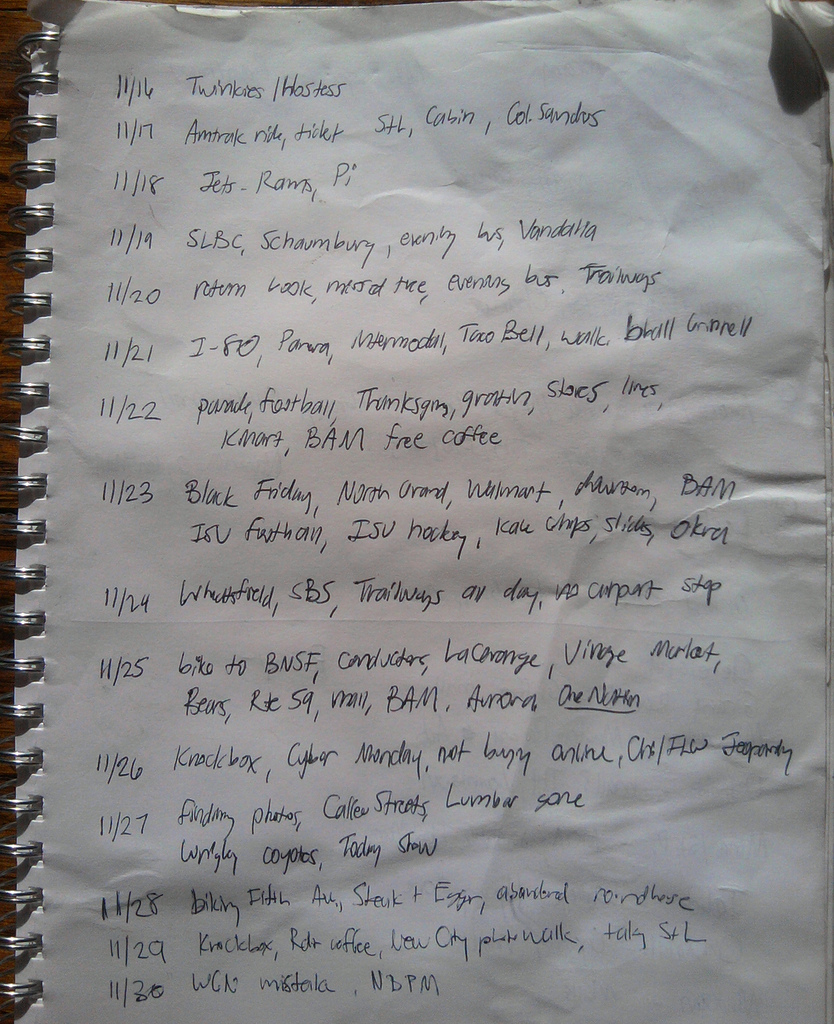 11/16 Twinkies / Hostess
11/17 Amtrak ride, ticket StL, Cabin, Col. Sanders
11/18 Jets - Rams, Pi
11/19 SLBC, Schaumburg, evening bus, Vandalia
11/20 return book, missed tree, evening bus, Trailways
11/21 I-80, Panera, Intermodal, Taco Bell, walk, bball Grinnell
11/22 parade, football, Thanksgiving, gratin, stores, lines,
Kmart, BAM free coffee
11/23 Black Friday, North Grand, Walmart, downtown, BAM
ISU football, ISU hockey, kale chips, slides, Okra
11/24 Wheatsfield, SBS, Trailways all day, no airport stop
11/25 bike to BNSF, conductors, LaGrange, Vintage Market,
Bears, Rte 59, mall, BAM, Aurora, One North
11/26 Knockbox, Cyber Monday, not buying online, Chi/FLW Jeopardy
11/27 finding photos, Streets, Lumbar sore
Wrigley coyotes, Today Show
11/28 biking Fifth Av, Steak + Eggs, abandoned roundhouse
11/29 Knockbox, coffee, New City photo walk, talk StL
11/30 WGN mistake, NBPM